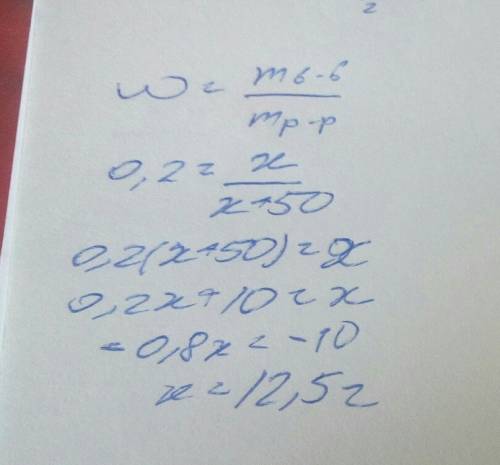 г
w = mв-в / mр-р
0,2 = x / x+50
0,2(x+50)=x
0,2x+10=x
-0,8x=-10
x=12,5г